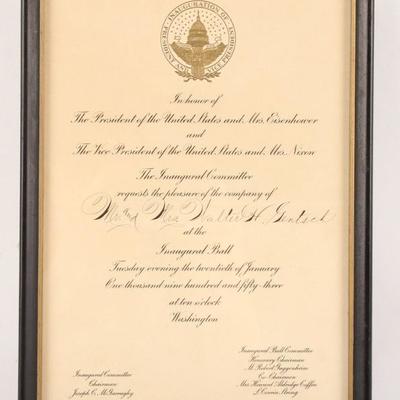 INAUGURATION OF
PRESIDENT AND VICE PRESIDENT
In honor of
The President of the United States and Mrs. Eisenhower
and
The Vice President of the United States and Mrs. Nixon
The Inaugural Committee
requests the pleasure of the company of
Mr. and Mrs. Walter H.
at the
Inaugural Ball
Tuesday evening the twentieth of January
One thousand nine hundred and fifty-three
at ten o'clock
Washington
Inaugural Committee
Chairman
Joseph C. McGarraghy
Inaugural Ball Committee
Honorary Chairman
M. Robert Guggenheim
Co-Chairmen
Mrs. Howard Aldredge Coffin
L. Corrin Strong